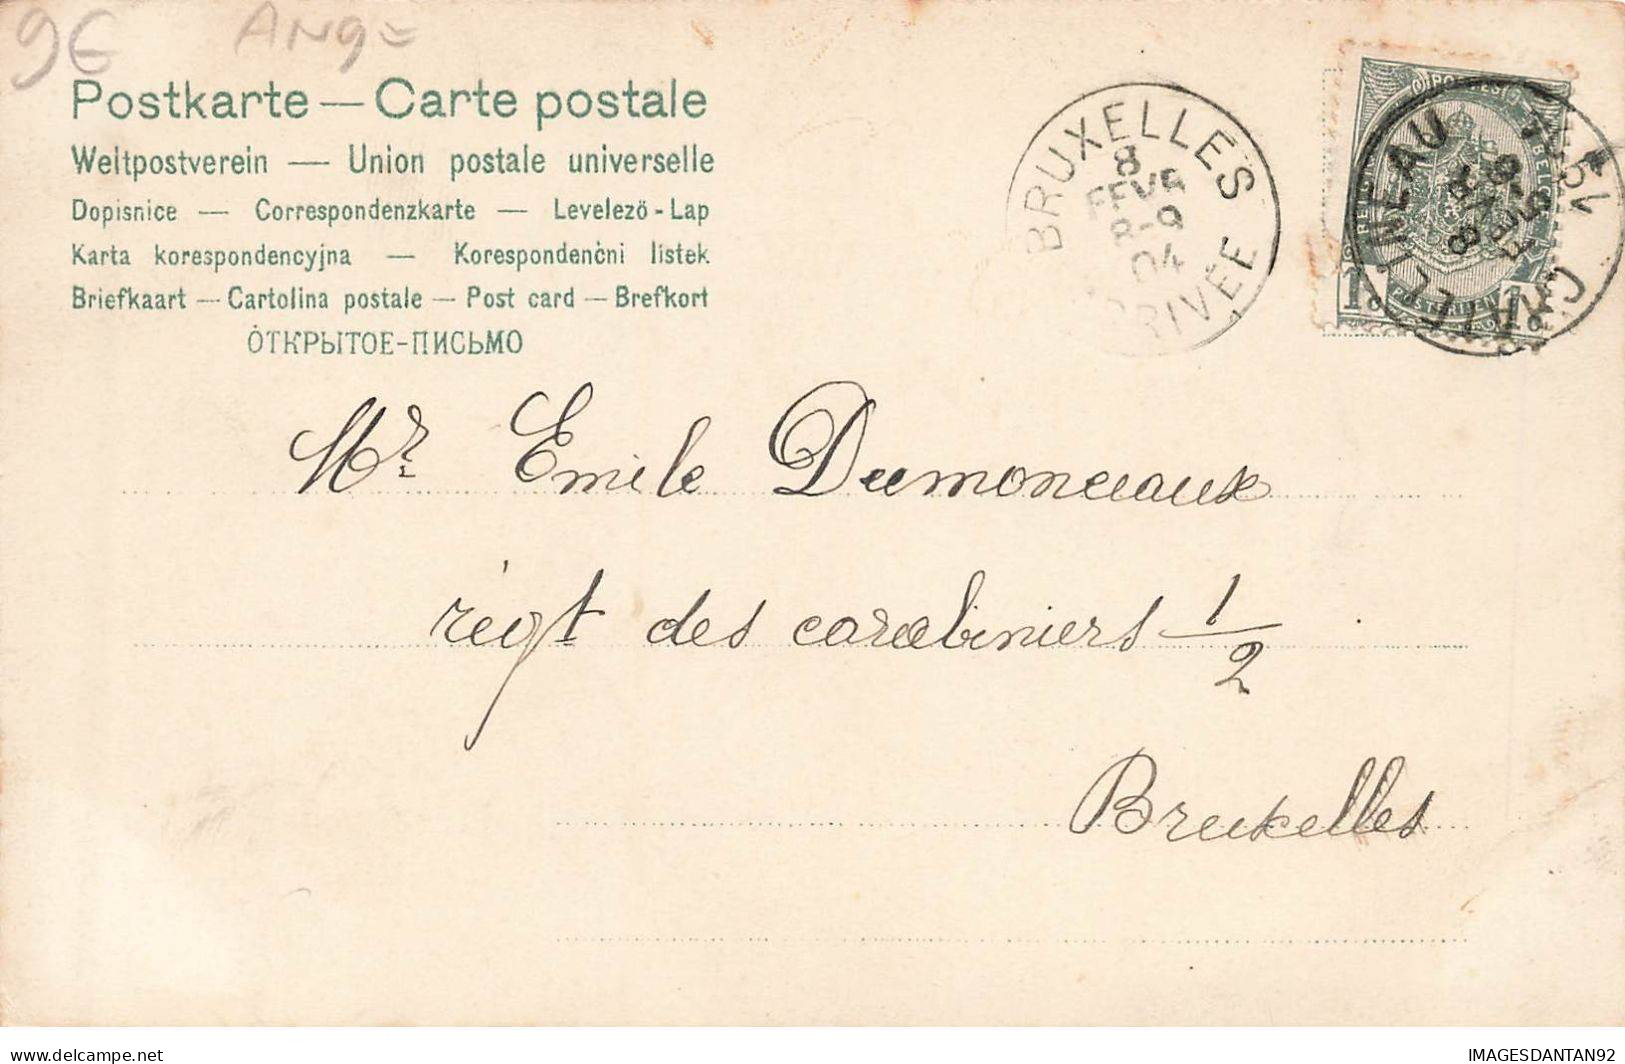 9€ ANGE
Postkarte — Carte postale
Weltpostverein — Union postale universelle
Dopisnice — Correspondenzkarte — Levelezö-Lap
Karta korespondencyjna — Korespondenční listek
Briefkaart — Cartolina postale — Post card — Brefkort
ÓТКРЫТОЕ-ПИСЬМО
BRUXELLES
8
FEVR
8-9
04
ARRIVEE
CARTE CINEAU
1c
Mr Emile Dumonceaux
régt des carabiniers 1/2
Bruxelles
www.delcampe.net
IMAGESDANTAN92